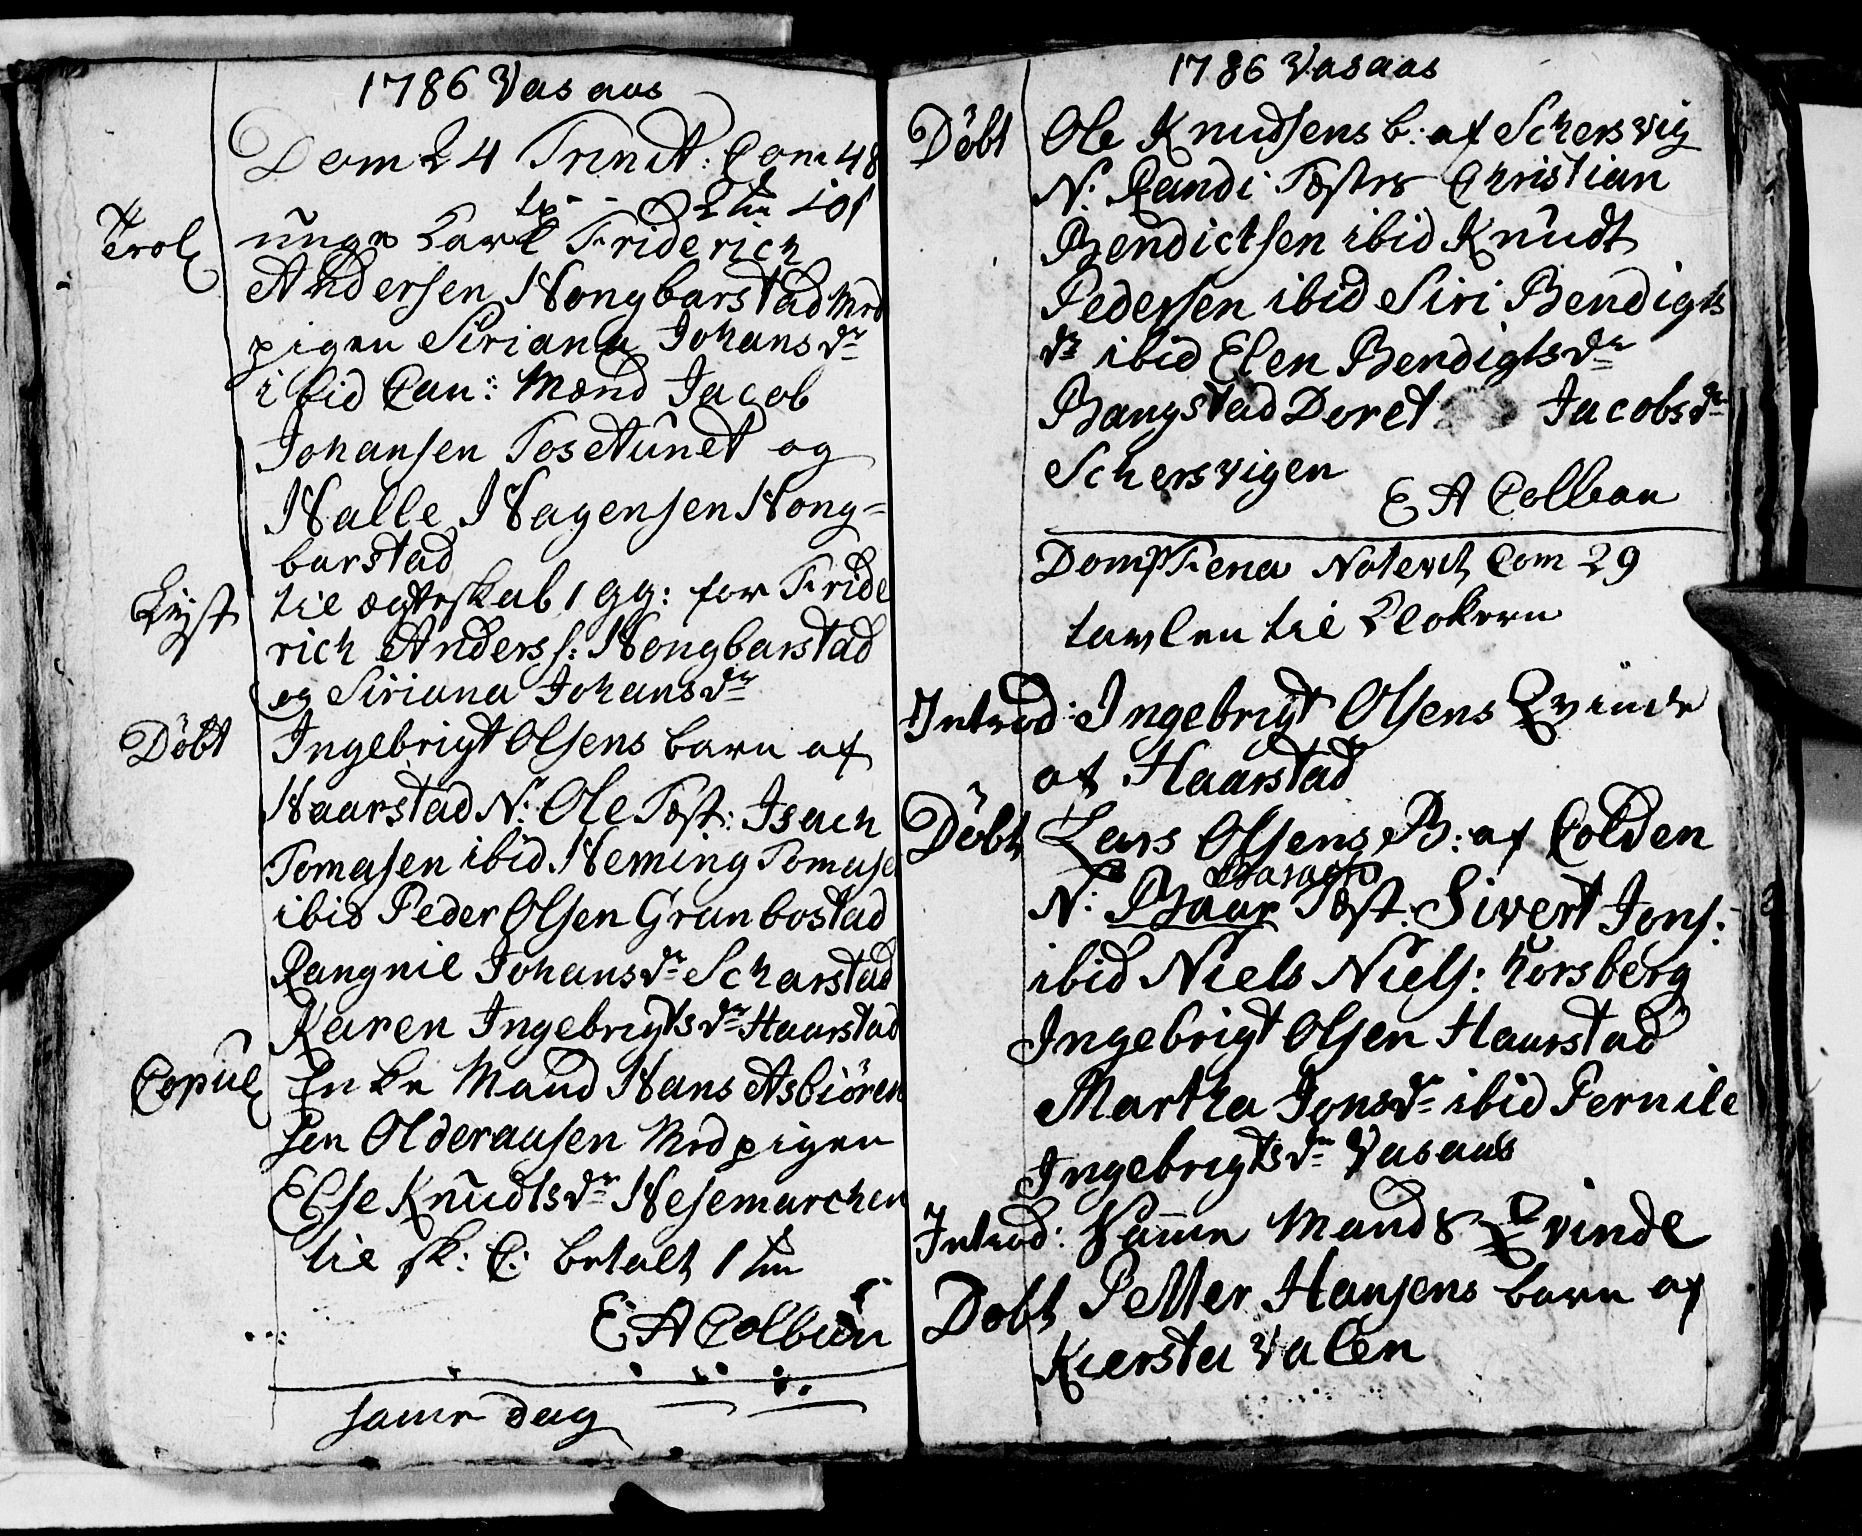 1786 Vasaas
Dom 24 Trinit: Com 48
Trol unge Karl Friderich
Andersen Hongbarstad Med
pigen Siriana Johansdr
ibid Cau: Mænd Jacob
Johansen Tosetunet og
Halle Hagensen Hong=
barstad
Lyst til ægteskab 1 gg: for Fride
rich Anders s: Hongbarstad
og Siriana Johansdr
Döbt Ingebrigt Olsens barn af
Haarstad N: Ole Test: Isach
Tomasen ibid Heming Tomase
ibid Peder Olsen Granbostad
Rangnil Johansdr Scharstad
Karen Ingebrigtsdr Haarstad
Copul Enke Mand Hans Asbiören
sen Olderausen Med pigen
Else Knudtsdr Hesemarchen
til sk: C: betalt 1
E A Colban
same dag
1786 Vasaas
Döbt Ole Knudsens b: af Schersvig
N: Randi Testes Christian
Bendictsen ibid Knudt
Pedersen ibid Siri Bendigts
dr ibid Elen Bendigtsdr
Bangstad Doret Jacobsdr
Schersvigen
E A Colban
Dom Com 29
tavlen til Klokern
Introd: Ingebrigt Olsens Qvinde
af Haarstad
Döbt Lars Olsens B: af Colden
N: Baar Test: Sivert Jons:
ibid Niels Niels: Korsberg
Ingebrigt Olsen Haarstad
Martha Jonsdr ibid Pernile
Ingebrigtsdr Vasaas
Introd: Samme Mands Qvinde
Döbt Petter Hansens barn af
Kierstavalen